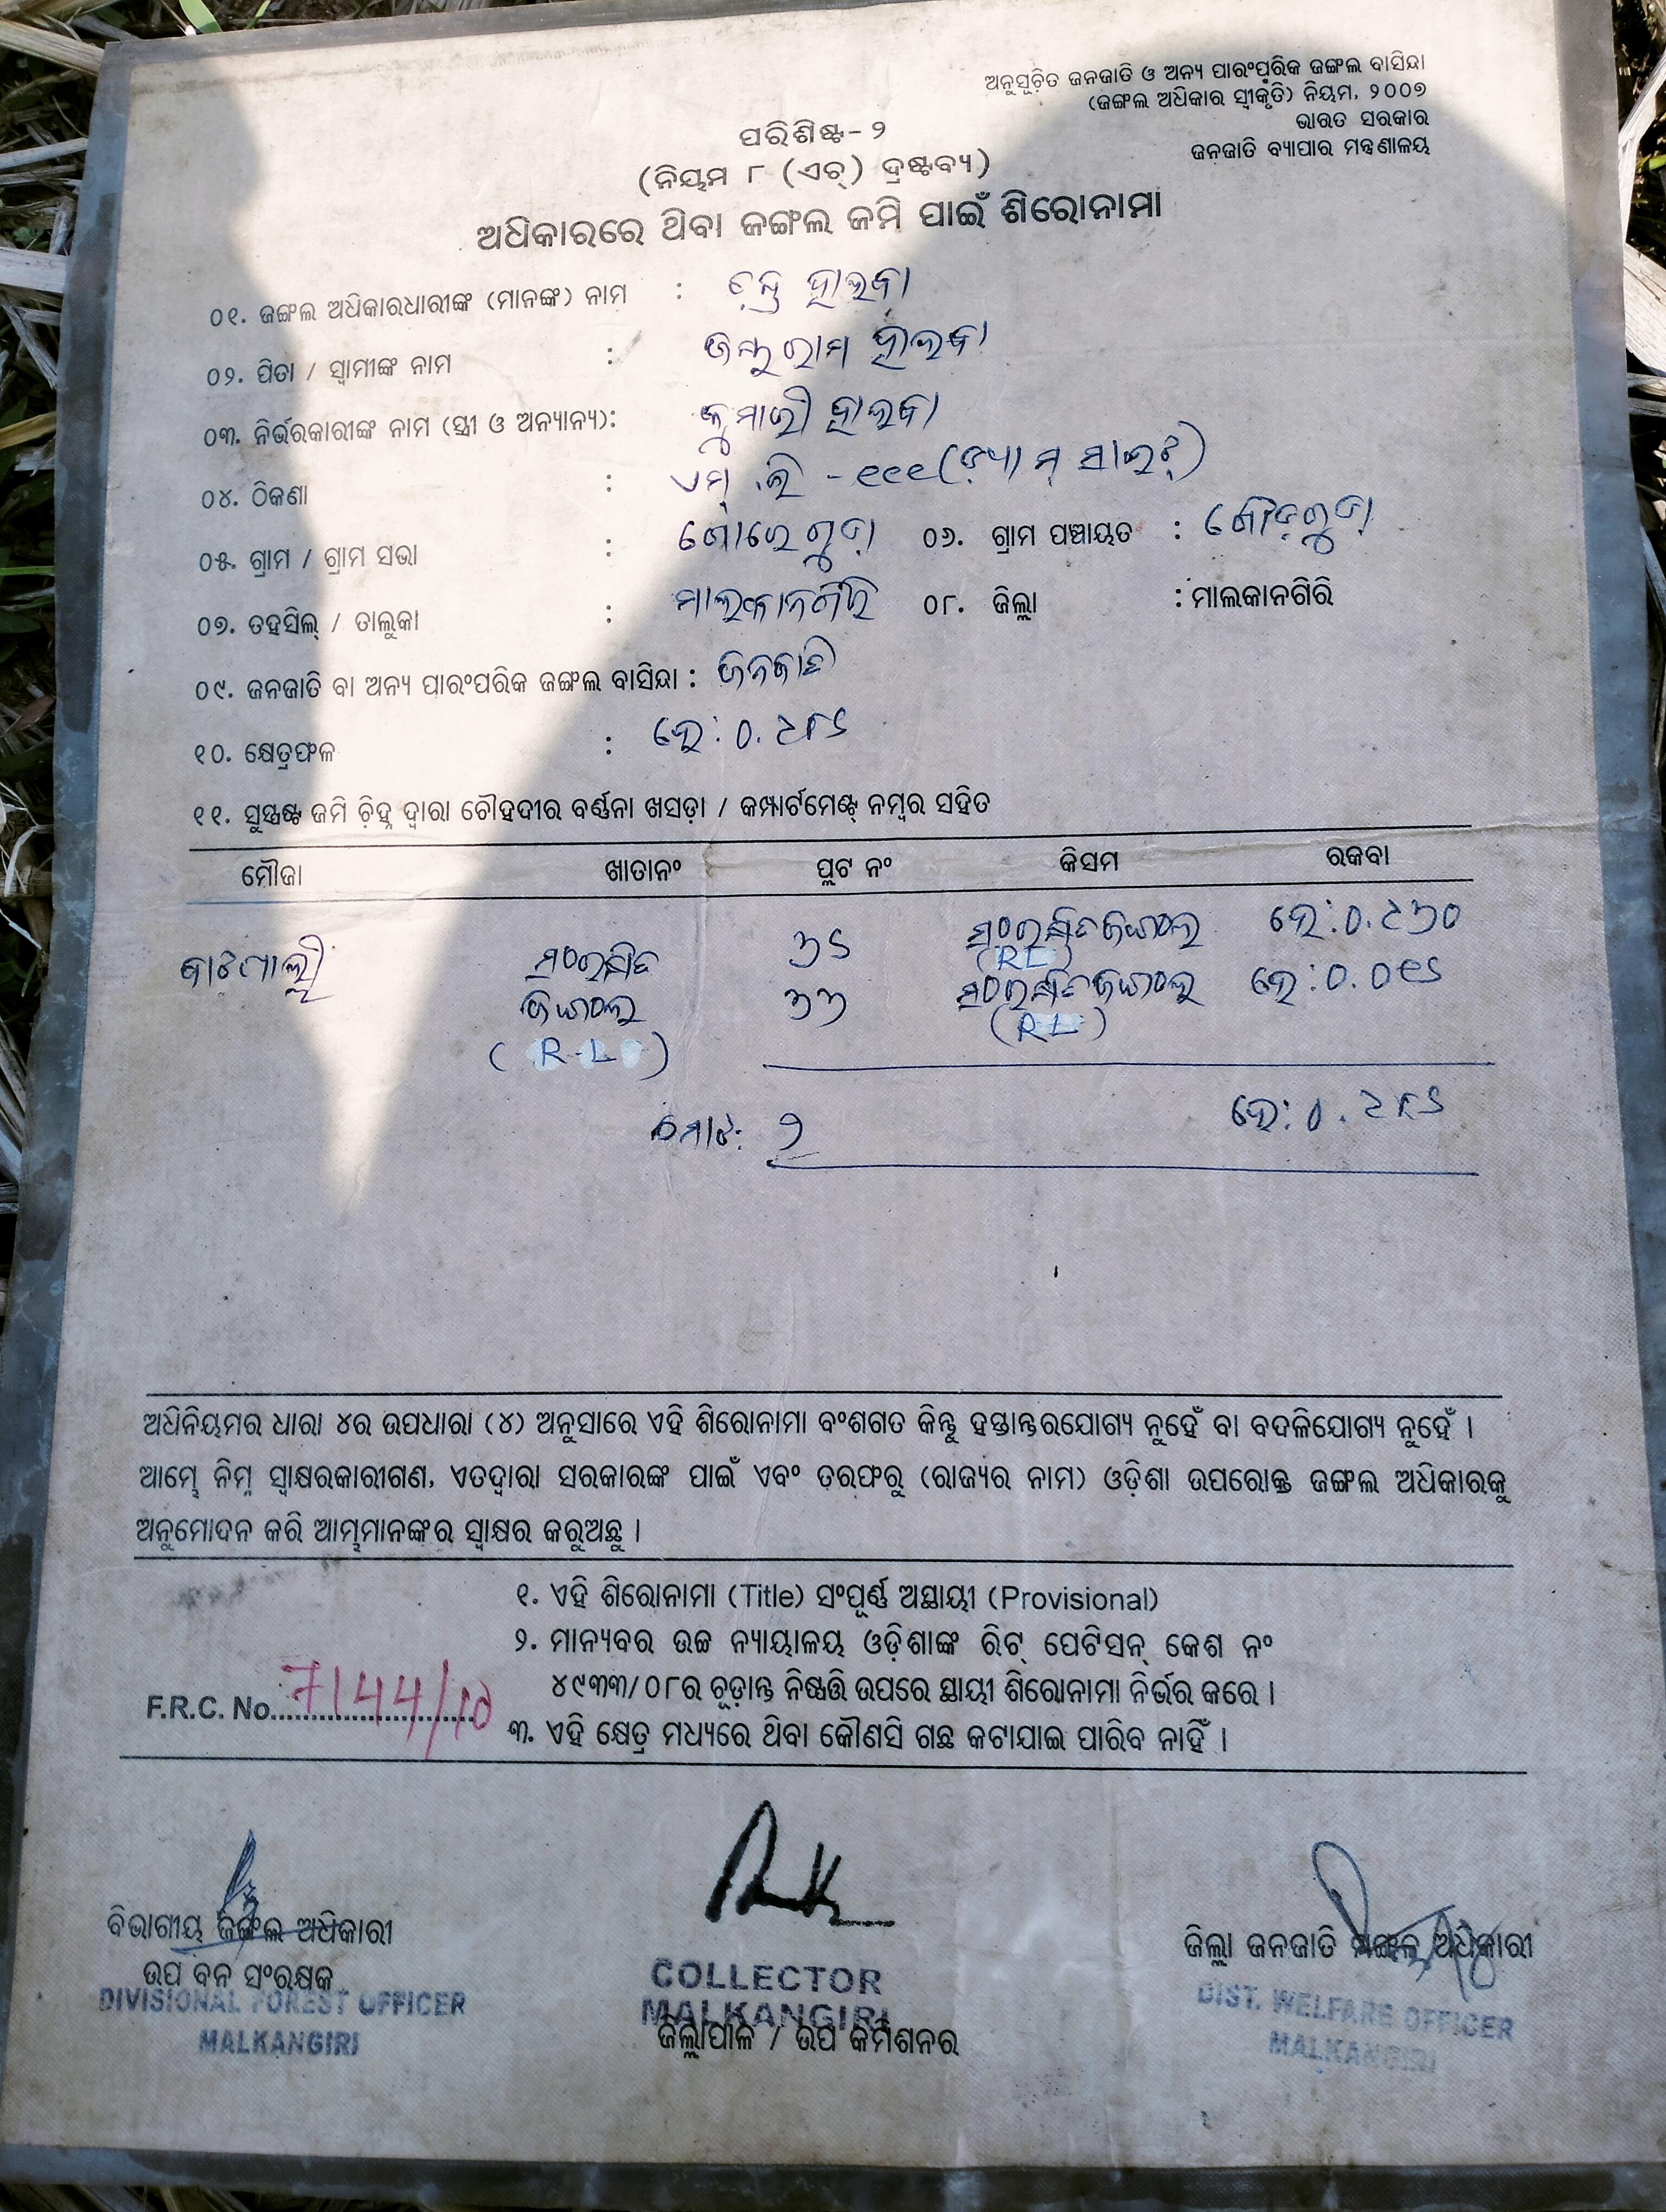 ଅନୁସୂଚିତ ଜନଜାତି ଓ ଅନ୍ୟ ପାରଂପରିକ ଜଙ୍ଗଲ ବାସିନ୍ଦା
(ଜଙ୍ଗଲ ଅଧିକାର ସ୍ୱୀକୃତି) ନିୟମ, ୨୦୦୭
ଭାରତ ସରକାର
ଜନଜାତି ବ୍ୟାପାର ମନ୍ତ୍ରଣାଳୟ
ପରିଶିଷ୍ଟ-୨
(ନିୟମ ୮ (ଏଚ୍) ଦ୍ରଷ୍ଟବ୍ୟ)
ଅଧିକାରରେ ଥିବା ଜଙ୍ଗଲ ଜମି ପାଇଁ ଶିରୋନାମା
୦୧. ଜଙ୍ଗଲ ଅଧିକାରଧାରୀଙ୍କ (ମାନଙ୍କ) ନାମ : ହାଲବା
୦୨. ପିତା / ସ୍ୱାମୀଙ୍କ ନାମ : ହାଲବା
୦୩. ନିର୍ଭରକାରୀଙ୍କ ନାମ (ସ୍ତ୍ରୀ ଓ ଅନ୍ୟାନ୍ୟ): କୁମାରୀ ହାଲବା
୦୪. ଠିକଣା : ଏମ୍.ଭି -୧୧୧ (ଡ୍ୟାମ୍ ସାଇଟ୍)
୦୫. ଗ୍ରାମ / ଗ୍ରାମ ସଭା : ଗୋରେଗୁଡ଼ା ୦୬. ଗ୍ରାମ ପଞ୍ଚାୟତ : ଗୌଡ଼ଗୁଡ଼ା
୦୭. ତହସିଲ୍ / ତାଲୁକା : ମାଲକାନଗିରି ୦୮. ଜିଲ୍ଲା : ମାଲକାନଗିରି
୦୯. ଜନଜାତି ବା ଅନ୍ୟ ପାରଂପରିକ ଜଙ୍ଗଲ ବାସିନ୍ଦା : ଜନଜାତି
୧୦. କ୍ଷେତ୍ରଫଳ : ହେ: ୦.୫୮୬
୧୧. ସୁସ୍ପଷ୍ଟ ଜମି ଚିହ୍ନ ଦ୍ୱାରା ଚୌହଦୀର ବର୍ଣ୍ଣନା ଖସଡ଼ା / କମ୍ପାର୍ଟମେଣ୍ଟ୍ ନମ୍ବର ସହିତ
ମୌଜା ଖାତାନଂ ପ୍ଲଟ ନଂ କିସମ ରକବା
ସଂରକ୍ଷିତ ୩୬ ସଂରକ୍ଷିତ ଜଙ୍ଗଲ ହେ:୦.୫୩୦
(RL)
ଜଙ୍ଗଲ ୩୩ ସଂରକ୍ଷିତ ଜଙ୍ଗଲ ହେ:୦.୦୧୬
(R-L) (RL)
ମୋଟ: ୨ ହେ: ୦.୫୮୬
ଅଧିନିୟମର ଧାରା ୪ର ଉପଧାରା (୪) ଅନୁସାରେ ଏହି ଶିରୋନାମା ବଂଶଗତ କିନ୍ତୁ ହସ୍ତାନ୍ତରଯୋଗ୍ୟ ନୁହେଁ ବା ବଦଳିଯୋଗ୍ୟ ନୁହେଁ ।
ଆମ୍ଭେ ନିମ୍ନ ସ୍ୱାକ୍ଷରକାରୀଗଣ, ଏତଦ୍ୱାରା ସରକାରଙ୍କ ପାଇଁ ଏବଂ ତରଫରୁ (ରାଜ୍ୟର ନାମ) ଓଡ଼ିଶା ଉପରୋକ୍ତ ଜଙ୍ଗଲ ଅଧିକାରକୁ
ଅନୁମୋଦନ କରି ଆମ୍ଭମାନଙ୍କର ସ୍ୱାକ୍ଷର କରୁଅଛୁ ।
୧. ଏହି ଶିରୋନାମା (Title) ସଂପୂର୍ଣ୍ଣ ଅସ୍ଥାୟୀ (Provisional)
୨. ମାନ୍ୟବର ଉଚ୍ଚ ନ୍ୟାୟାଳୟ ଓଡ଼ିଶାଙ୍କ ରିଟ୍ ପେଟିସନ୍ କେଶ ନଂ
୪୯୩୩/୦୮ର ଚୂଡ଼ାନ୍ତ ନିଷ୍ପତ୍ତି ଉପରେ ସ୍ଥାୟୀ ଶିରୋନାମା ନିର୍ଭର କରେ ।
F.R.C. No. 7144/10
୩. ଏହି କ୍ଷେତ୍ର ମଧ୍ୟରେ ଥିବା କୌଣସି ଗଛ କଟାଯାଇ ପାରିବ ନାହିଁ ।
ବିଭାଗୀୟ ଜଙ୍ଗଲ ଅଧିକାରୀ
ଉପ ବନ ସଂରକ୍ଷକ
DIVISIONAL FOREST OFFICER
MALKANGIRI
COLLECTOR
MALKANGIRI
ଜିଲ୍ଲାପାଳ / ଉପ କମିଶନର
ଜିଲ୍ଲା ଜନଜାତି ମଙ୍ଗଳ ଅଧିକାରୀ
DIST. WELFARE OFFICER
MALKANGIRI